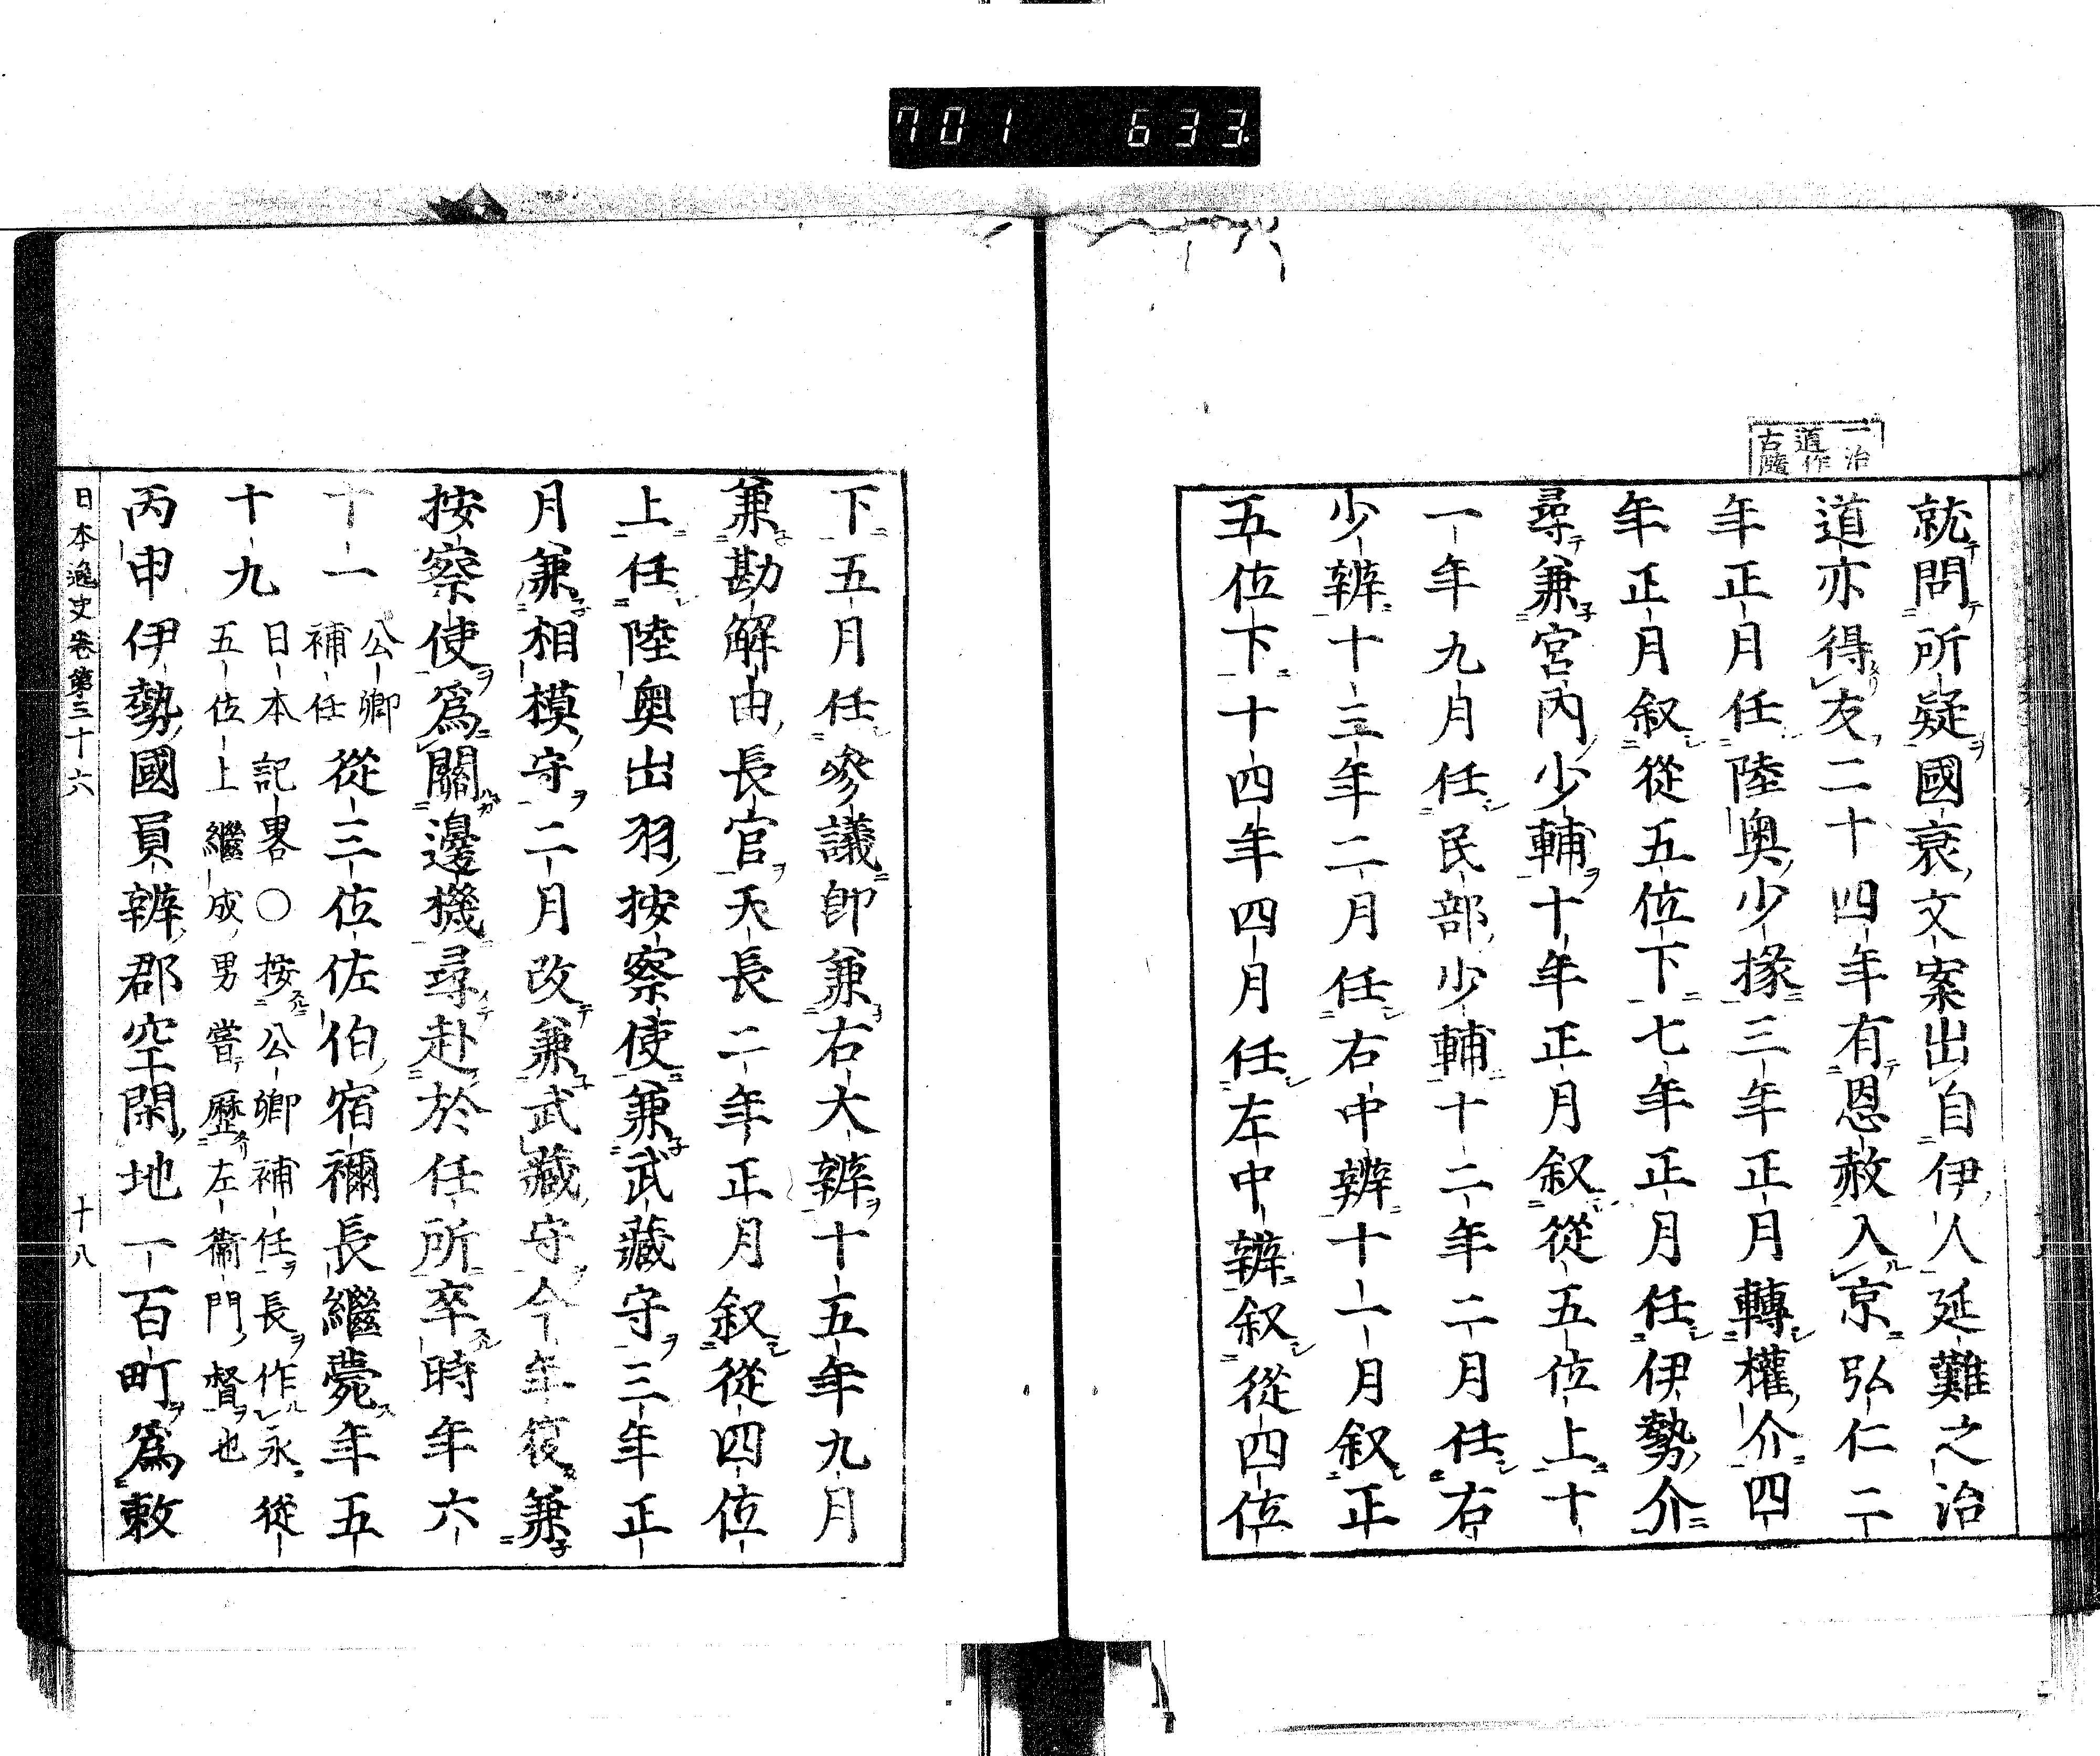 701 633
一治
道作
古牘
就問所疑國衰文案出自伊人延難之治
道亦得友二十四年有恩赦入京弘仁二
年正月任陸奥少掾三年正月轉權介四
年正月叙從五位下七年正月任伊勢介
尋兼宮内少輔十年正月叙從五位上十
一年九月任民部少輔十二年二月任右
少辨十三年二月任右中辨十一月叙正
五位下十四年四月任左中辨叙從四位
下五月任參議卽兼右大辨十五年九月
兼勘解由長官天長二年正月叙從四位
上任陸奥出羽按察使兼武藏守三年正
月兼相模守二月改兼武藏守今年復兼
按察使爲關邊機尋赴於任所卒時年六
十一公卿補任從三位佐伯宿禰長繼薨年五
十九日本記畧○按公卿補任長作永從
五位上繼成男嘗歷左衞門督也
丙申伊勢國員辨郡空閑地一百町爲敕
日本逸史卷第三十六 十八